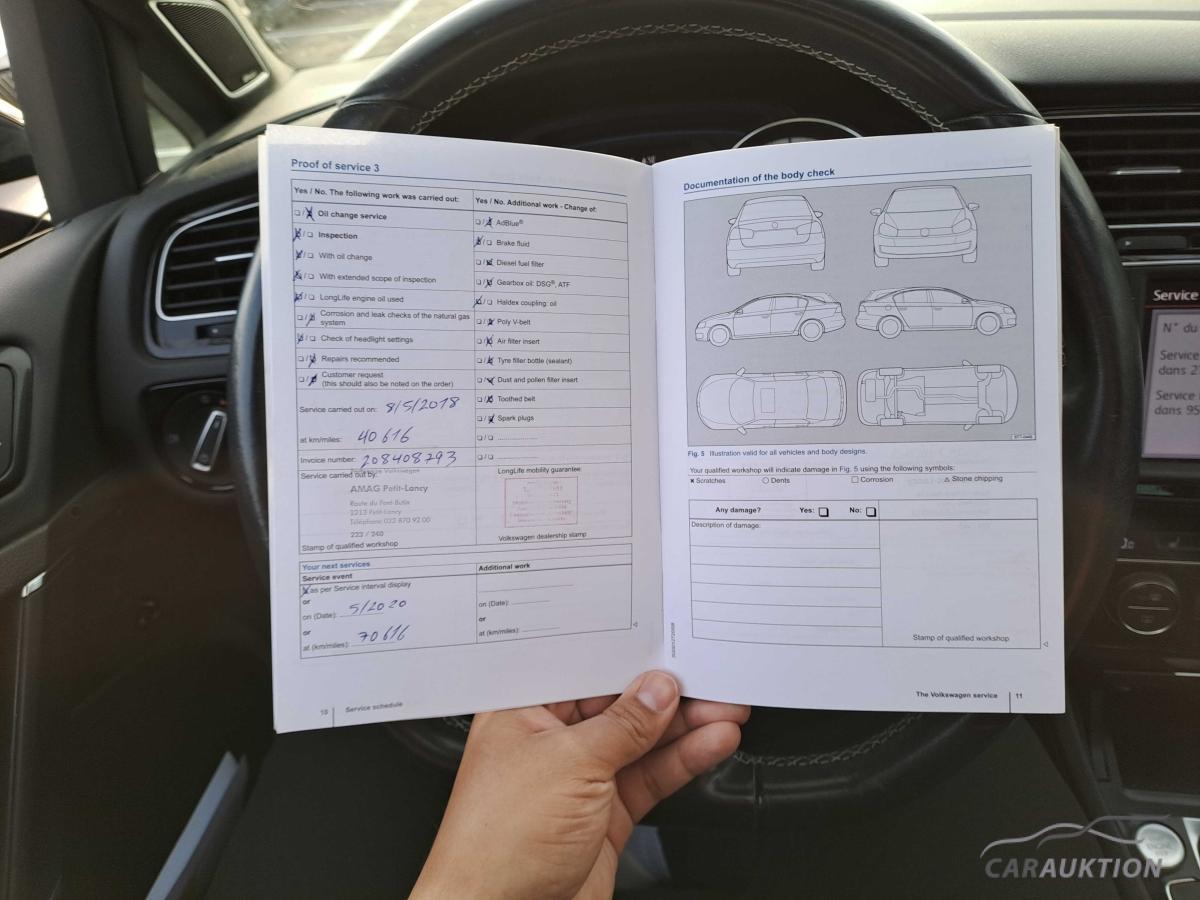 Proof of service 3
Yes / No. The following work was carried out:
☐/☒ Oil change service
☒/☐ Inspection
☒/☐ With oil change
☒/☐ With extended scope of inspection
☒/☐ LongLife engine oil used
☐/☒ Corrosion and leak checks of the natural gas
system
☒/☐ Check of headlight settings
☐/☒ Repairs recommended
☐/☒ Customer request
(this should also be noted on the order)
Service carried out on: 8/5/2018
at km/miles: 40616
Invoice number: 208408793
Service carried out by:
AMAG Petit-Lancy
Route du Pont-Butin
1213 Petit-Lancy
Téléphone 022 870 92 00
223 / 240
Stamp of qualified workshop
Yes / No. Additional work - Change of:
☐/☒ AdBlue®
☒/☐ Brake fluid
☐/☒ Diesel fuel filter
☐/☒ Gearbox oil: DSG®, ATF
☒/☐ Haldex coupling: oil
☐/☒ Poly V-belt
☐/☒ Air filter insert
☐/☒ Tyre filler bottle (sealant)
☐/☒ Dust and pollen filter insert
☐/☒ Toothed belt
☐/☒ Spark plugs
☐/☐ ....................
☐/☐ ....................
LongLife mobility guarantee:
Volkswagen dealership stamp
Your next services
Service event
☒ as per Service interval display
or
on (Date): 5/2020
or
at (km/miles): 70616
Additional work
on (Date): ....................
or
at (km/miles): ....................
10 Service schedule
Documentation of the body check
Fig. 5 Illustration valid for all vehicles and body designs.
Your qualified workshop will indicate damage in Fig. 5 using the following symbols:
× Scratches ○ Dents □ Corrosion △ Stone chipping
Any damage? Yes: ❑ No: ❑
Description of damage:
Stamp of qualified workshop
The Volkswagen service 11
Service
N° du
Service
dans 2
Service
dans 95
CARAUKTION